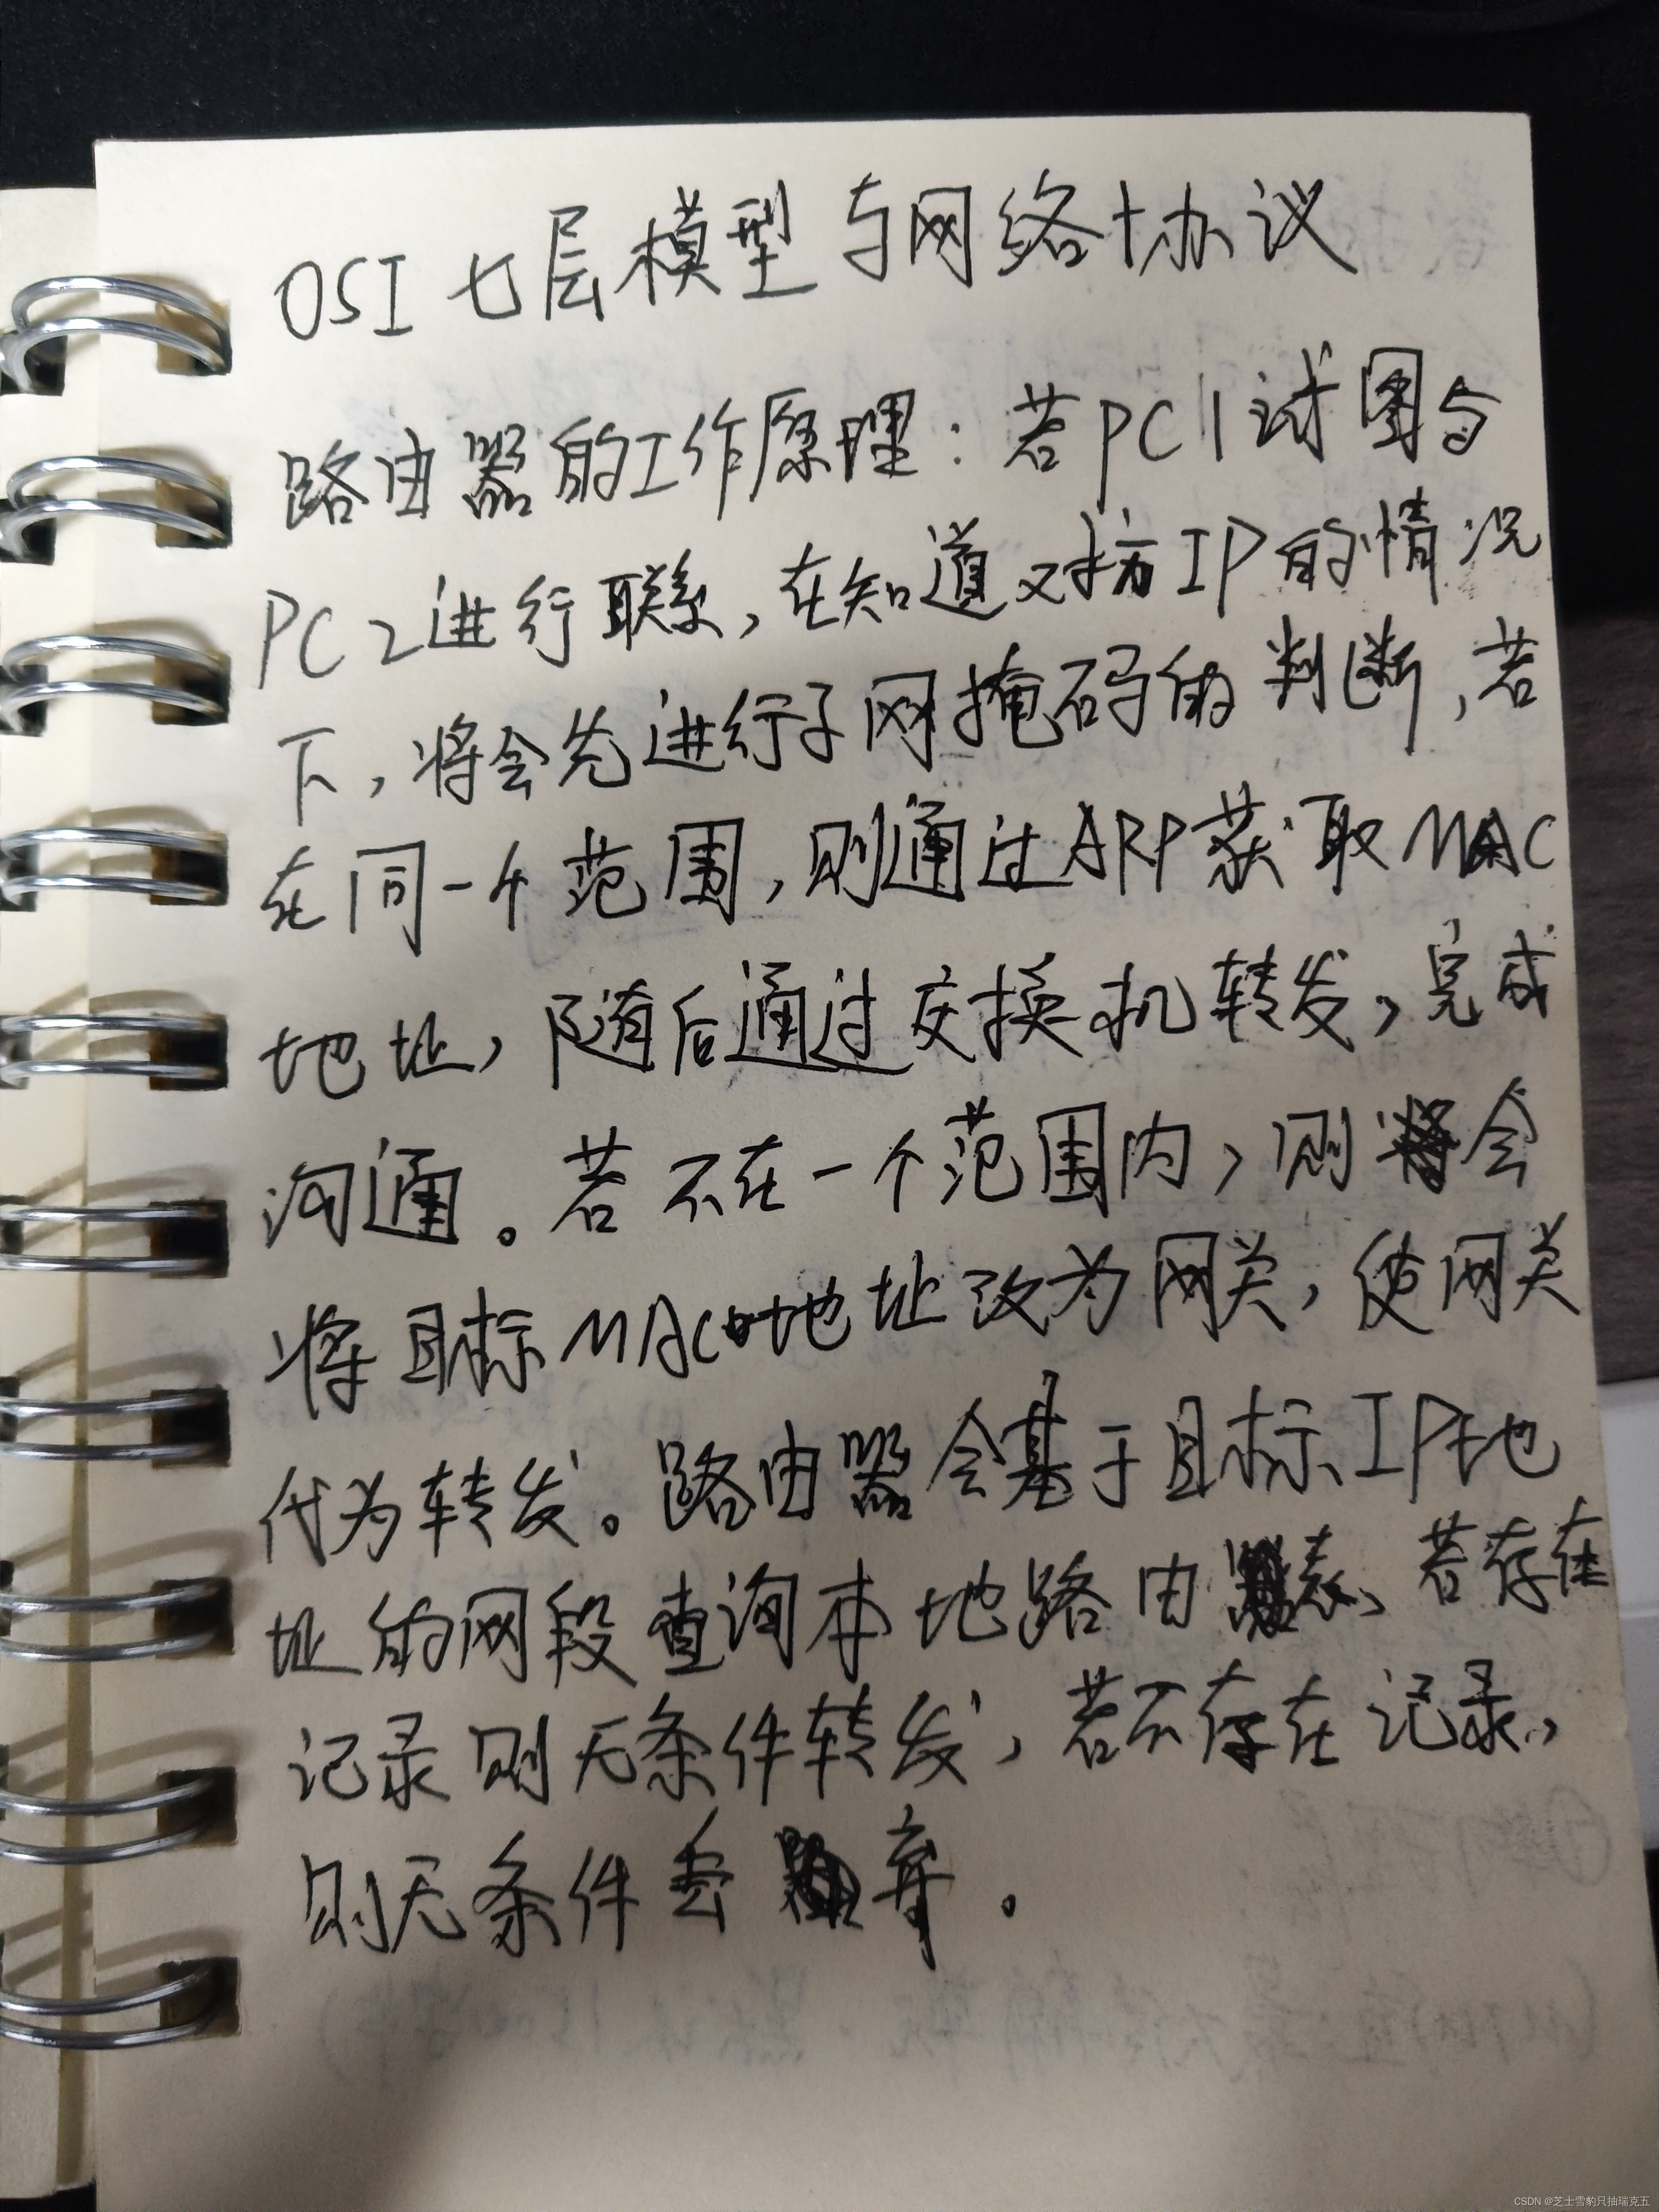 OSI七层模型与网络协议
路由器的工作原理：若PC1试图与
PC2进行联系，在知道对方IP的情况
下，将会先进行子网掩码的判断，若
在同一个范围，则通过ARP获取MAC
地址，随后通过交换机转发，完成
沟通。若不在一个范围内，则会
将目标MAC地址改为网关，使网关
代为转发。路由器会基于目标IP地
址的网段查询本地路由表，若存在
记录则无条件转发，若不存在记录，
则无条件丢弃。
CSDN @芝士雪豹只抽瑞克五